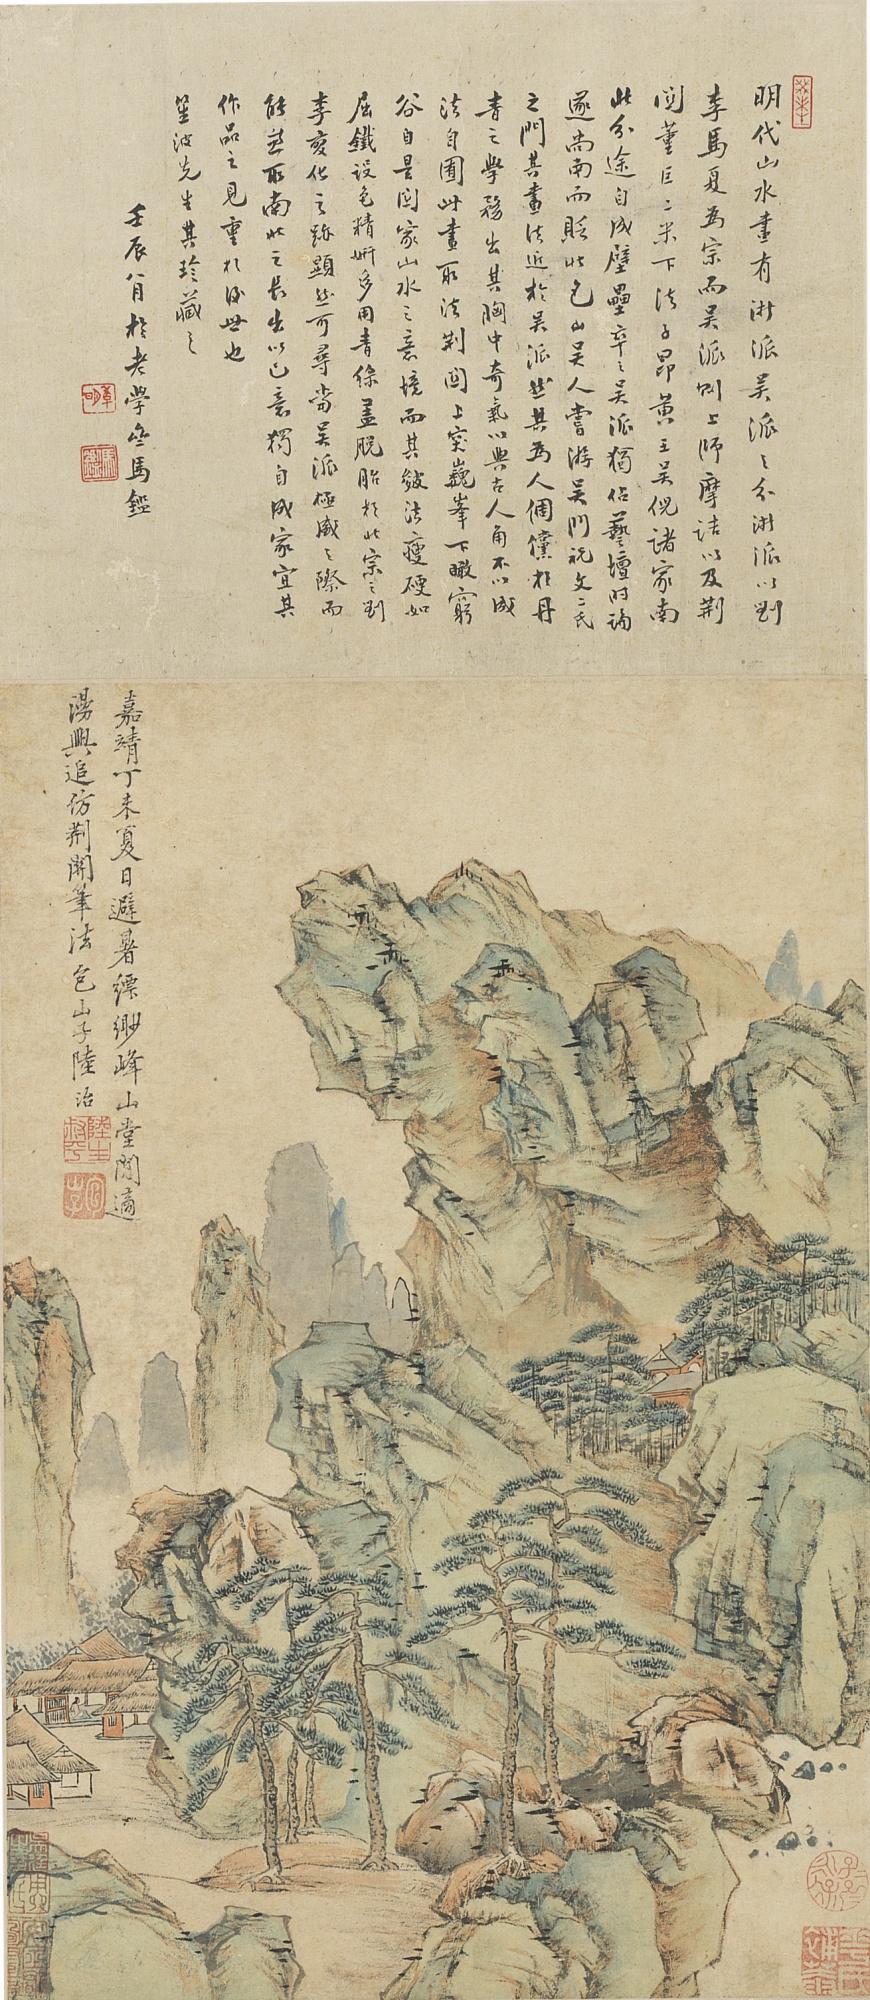 明代山水畫有浙派吳派之分浙派以劉
李馬夏為宗而吳派則上師摩詰以及荆
關董巨二米下法子昂黃王吳倪諸家南
北分途自成壁壘卒之吳派獨佔藝壇時論
遂尚南而貶北包山吳人嘗游吳門祝文二氏
之門其畫法近於吳派然其為人倜儻於丹
青之學務出其胸中奇氣以與古人角不以成
法自囿此畫取法荆關上突巍峯下瞰窮
谷自是關家山水之意境而其皴法瘦硬如
屈鐵設色精妍多用青綠盖脫胎於北宗之劉
李变化之跡顯然可尋當吳派極盛之際而
能兼取南北之長出以己意獨自成家宜其
作品之見重於後世也
笙波先生其珍藏之
壬辰八月於老學盦馬鑑
嘉靖丁未夏日避暑縹緲峰山堂閒適
漫興追仿荆關筆法包山子陸治
陸生
叔平